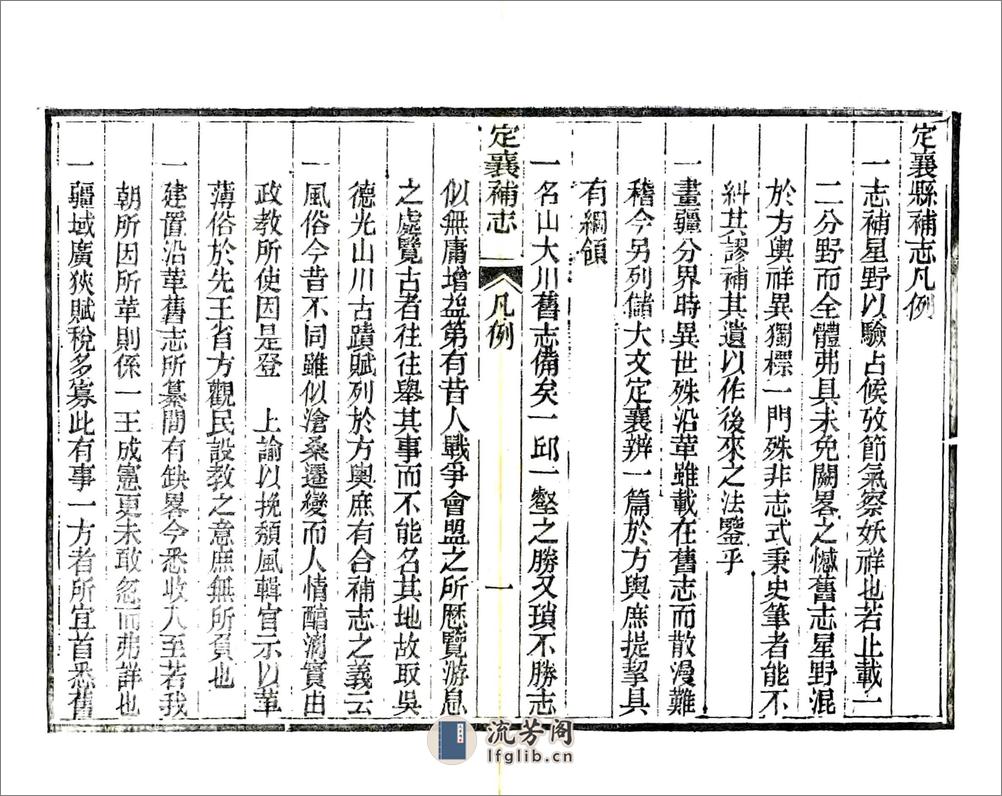 定襄縣補志凡例
一志補星野以驗占候攷節氣察妖祥也若止載一
二分野而全體弗具未免闕畧之憾舊志星野混
於方輿祥異獨標一門殊非志式秉史筆者能不
糾其謬補其遺以作後來之法鑒乎
一畫疆分界時異世殊沿革雖載在舊志而散漫難
稽今另列儲大文定襄辨一篇於方輿庶提挈具
有綱領
一名山大川舊志備矣一邱一壑之勝又瑣不勝志
定襄補志
凡例
一
似無庸增益第有昔人戰爭會盟之所歷覽游息
之處覽古者往往舉其事而不能名其地故取吳
德光山川古蹟賦列於方輿庶有合補志之義云
一風俗今昔不同雖似滄桑遷變而人情醕澆實由
政教所使因是登　上諭以挽頹風輯官示以革
薄俗於先王省方觀民設教之意庶無所負也
一建置沿革舊志所纂間有缺畧今悉收入至若我
朝所因所革則係一王成憲更未敢忽而弗詳也
一疆域廣狹賦稅多寡此有事一方者所宜首悉舊
流芳阁
lfglib.cn